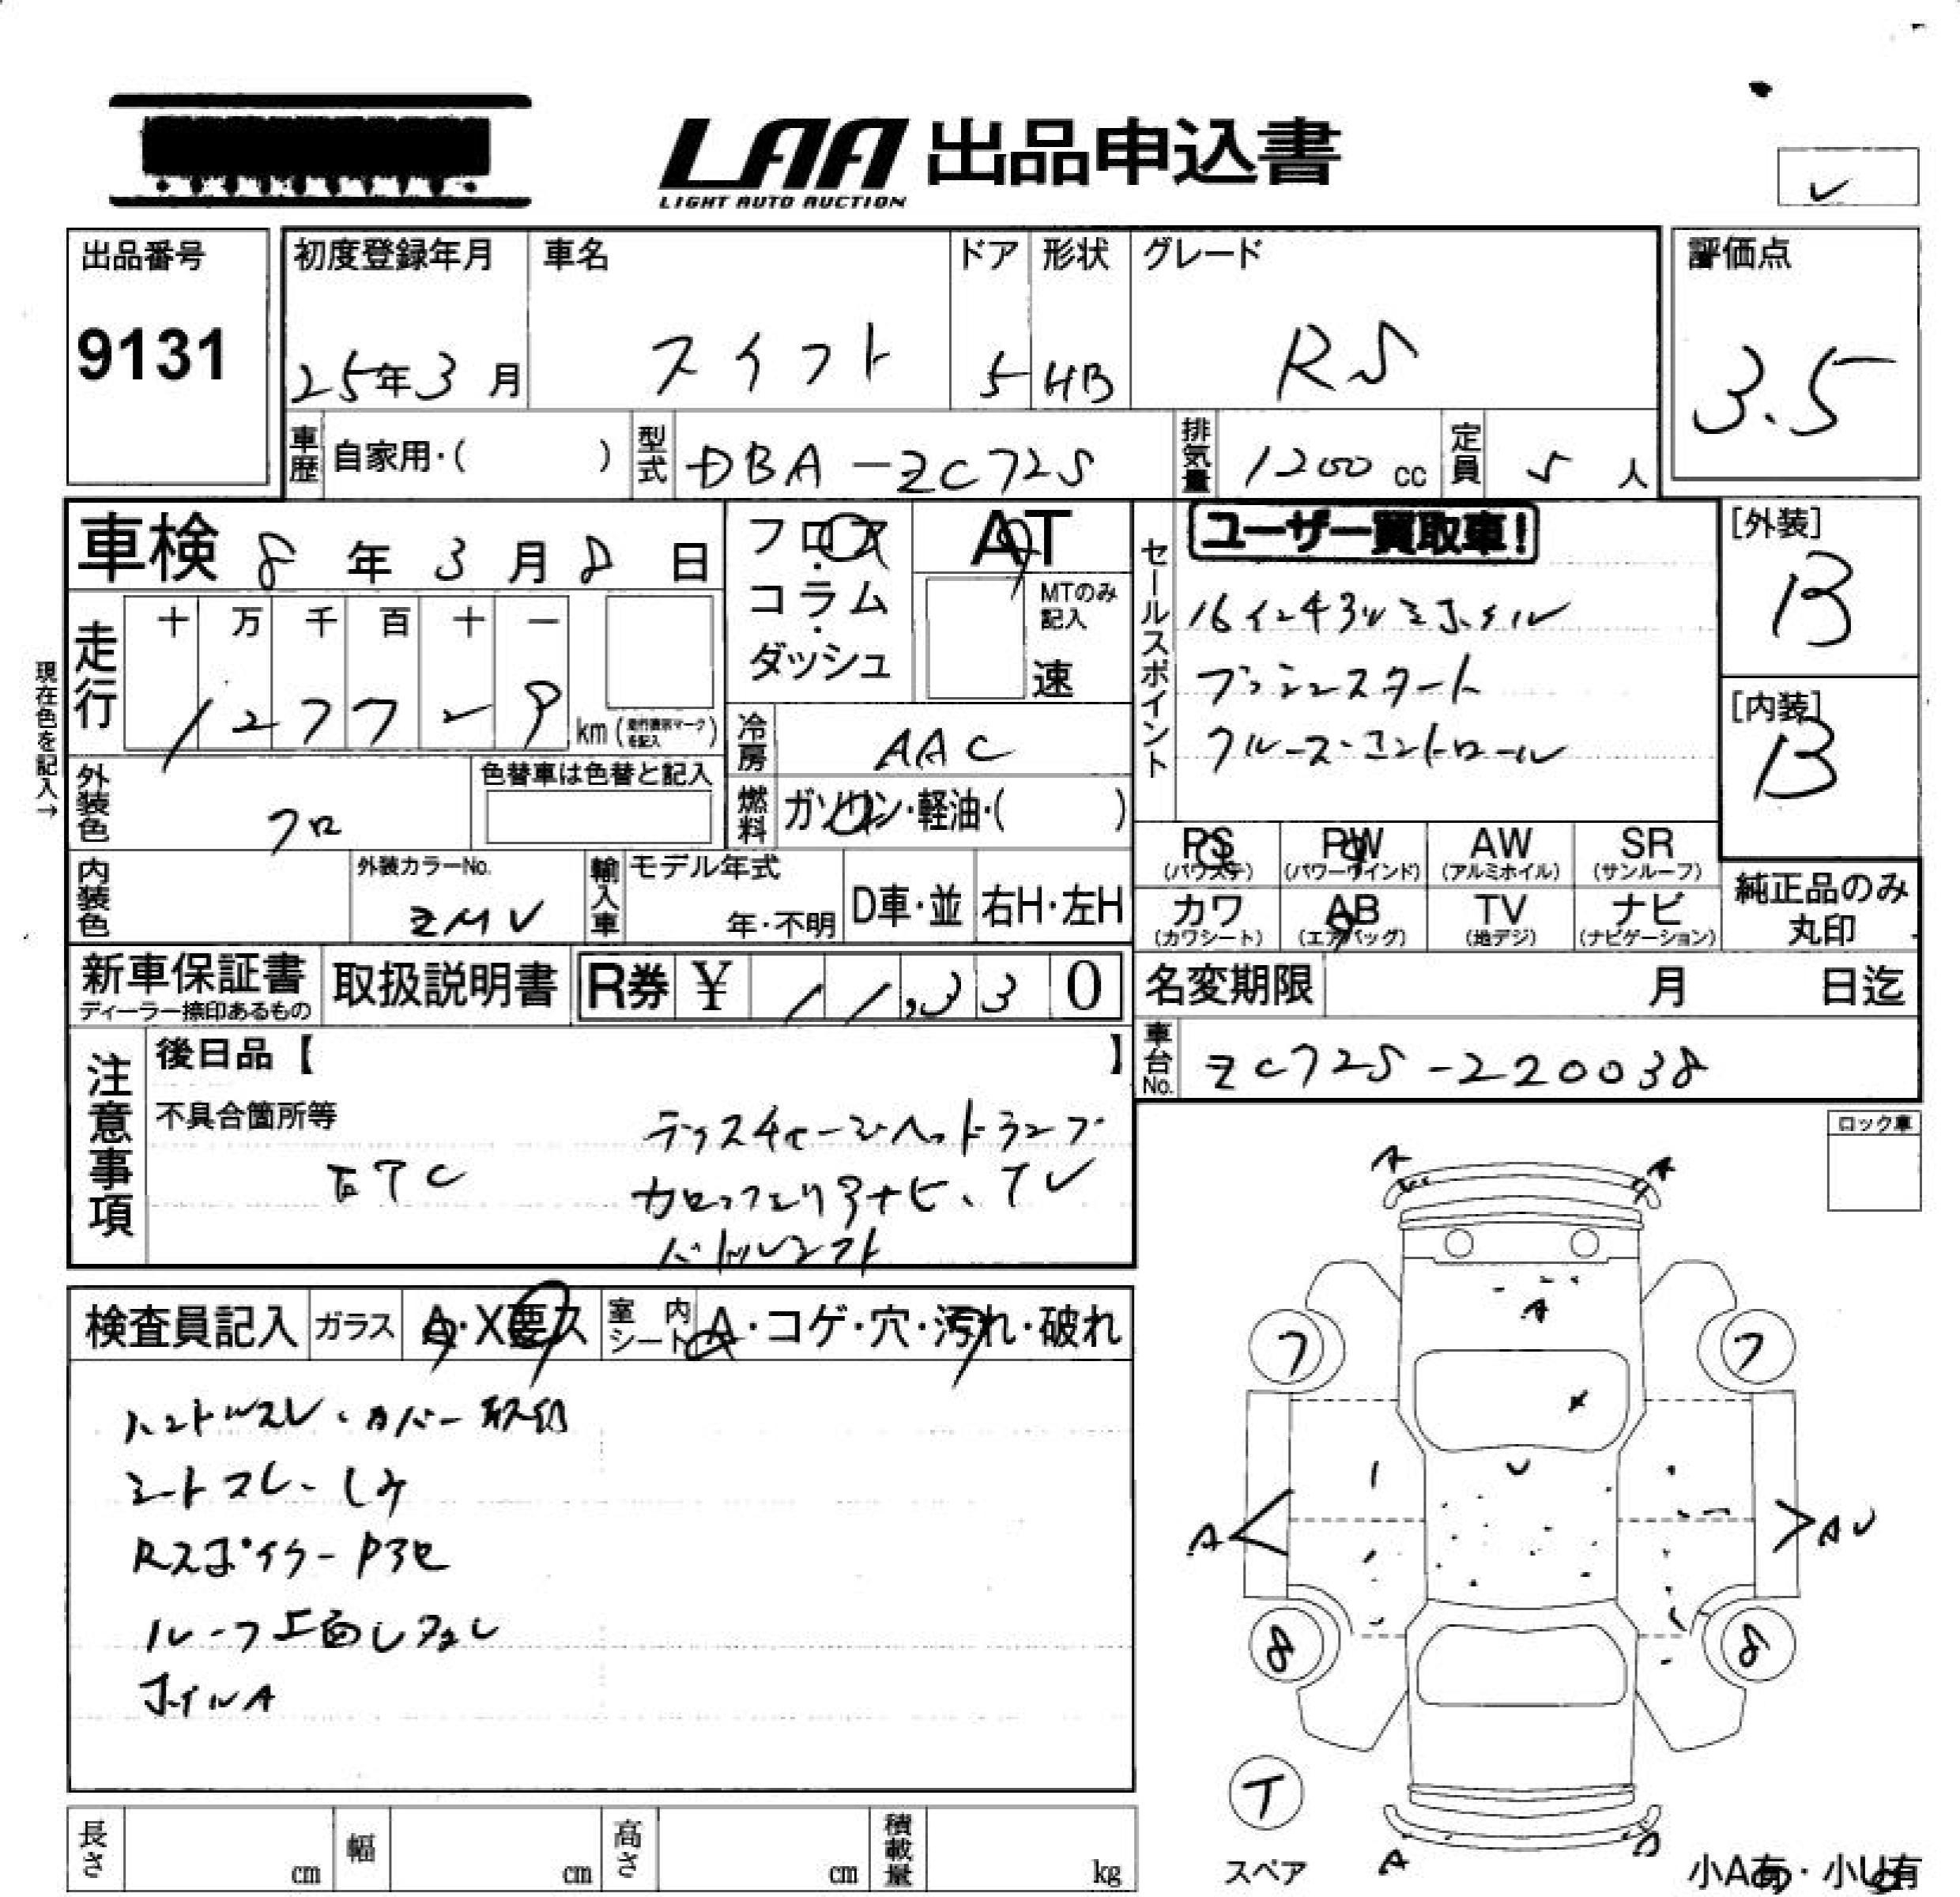 LAA 出品申込書
LIGHT AUTO AUCTION
出品番号
9131
初度登録年月
25年3月
車名
スイフト
ドア
5
形状
HB
グレード
RS
評価点
3.5
車歴 自家用・( )
型式 DBA-ZC72S
排気量 1200 cc
定員 5 人
車検 8年3月8日
フロア・コラム・ダッシュ
AT
MTのみ記入
速
セールスポイント
ユーザー買取車!
16インチアルミホイル
プッシュスタート
クルーズコントロール
[外装]
B
[内装]
B
現在色を記入→
走行
十 万 千 百 十 一
127729 km (走行表示マークを記入)
冷房 AAC
外装色 クロ
色替車は色替と記入
燃料 ガソリン・軽油・( )
内装色
外装カラーNo.
ZMV
輸入車
モデル年式
年・不明
D車・並
右H・左H
PS (パワステ)
PW (パワーウインド)
AW (アルミホイル)
SR (サンルーフ)
カワ (カワシート)
AB (エアバッグ)
TV (地デジ)
ナビ (ナビゲーション)
純正品のみ丸印
新車保証書
ディーラー捺印あるもの
取扱説明書
R券 ¥ 11,330
名変期限 月 日迄
車台No. ZC72S-220038
注意事項
後日品【 】
不具合箇所等
ディスチャージヘッドランプ
ETC
カロッツェリアナビ、TV
パドルシフト
ロック車
検査員記入
ガラス A・X要ス
室内シート A・コゲ・穴・汚れ・破れ
ハンドルスレ・カバー
シートスレ・しみ
Rスポイラー
ルーフ上面
ホイルA
A
A
A
7
7
X
U
A
AU
8
8
T
スペア
A
小A有・小U有
長さ cm
幅 cm
高さ cm
積載量 kg